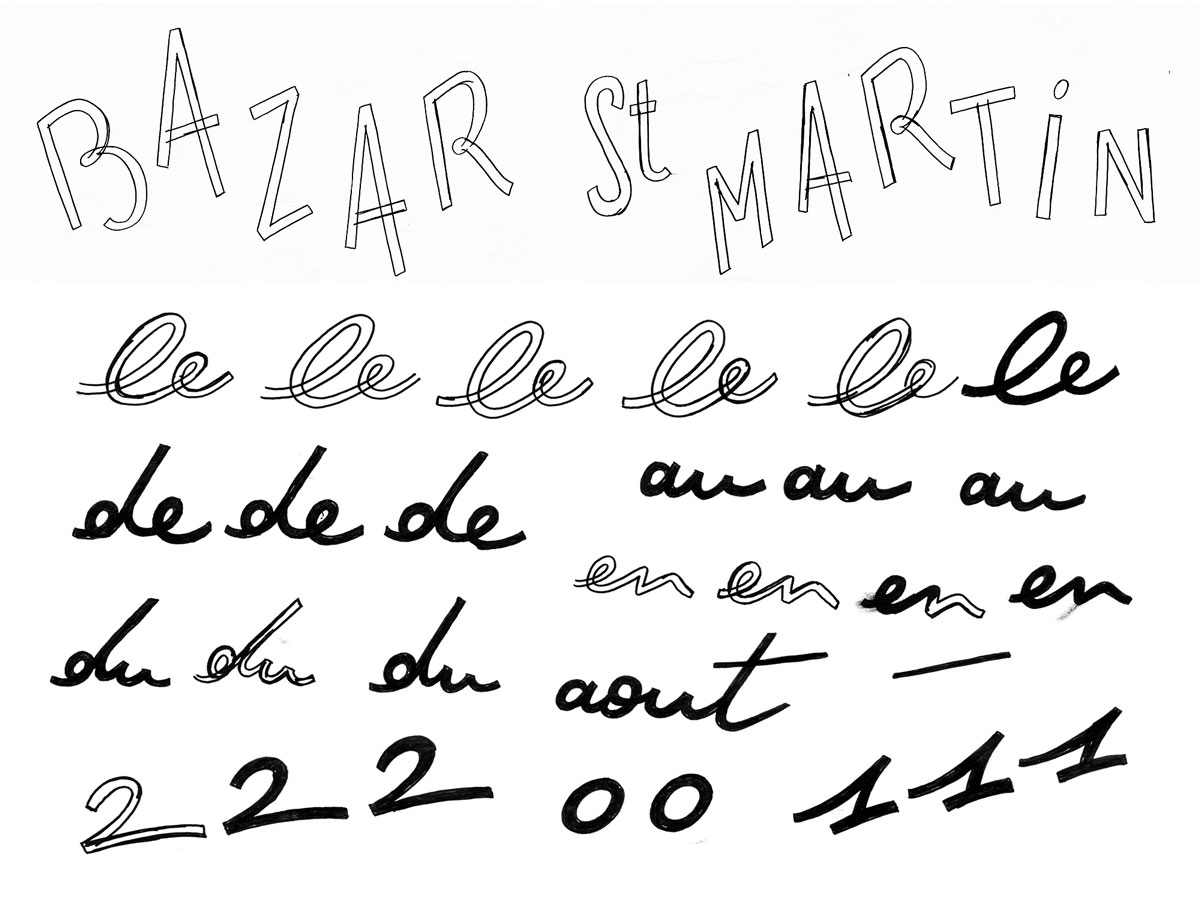 BAZAR St MARTiN
le le le le le le
de de de au au au
en en en en
du du du
aout
2 2 2 0 0 1 1 1